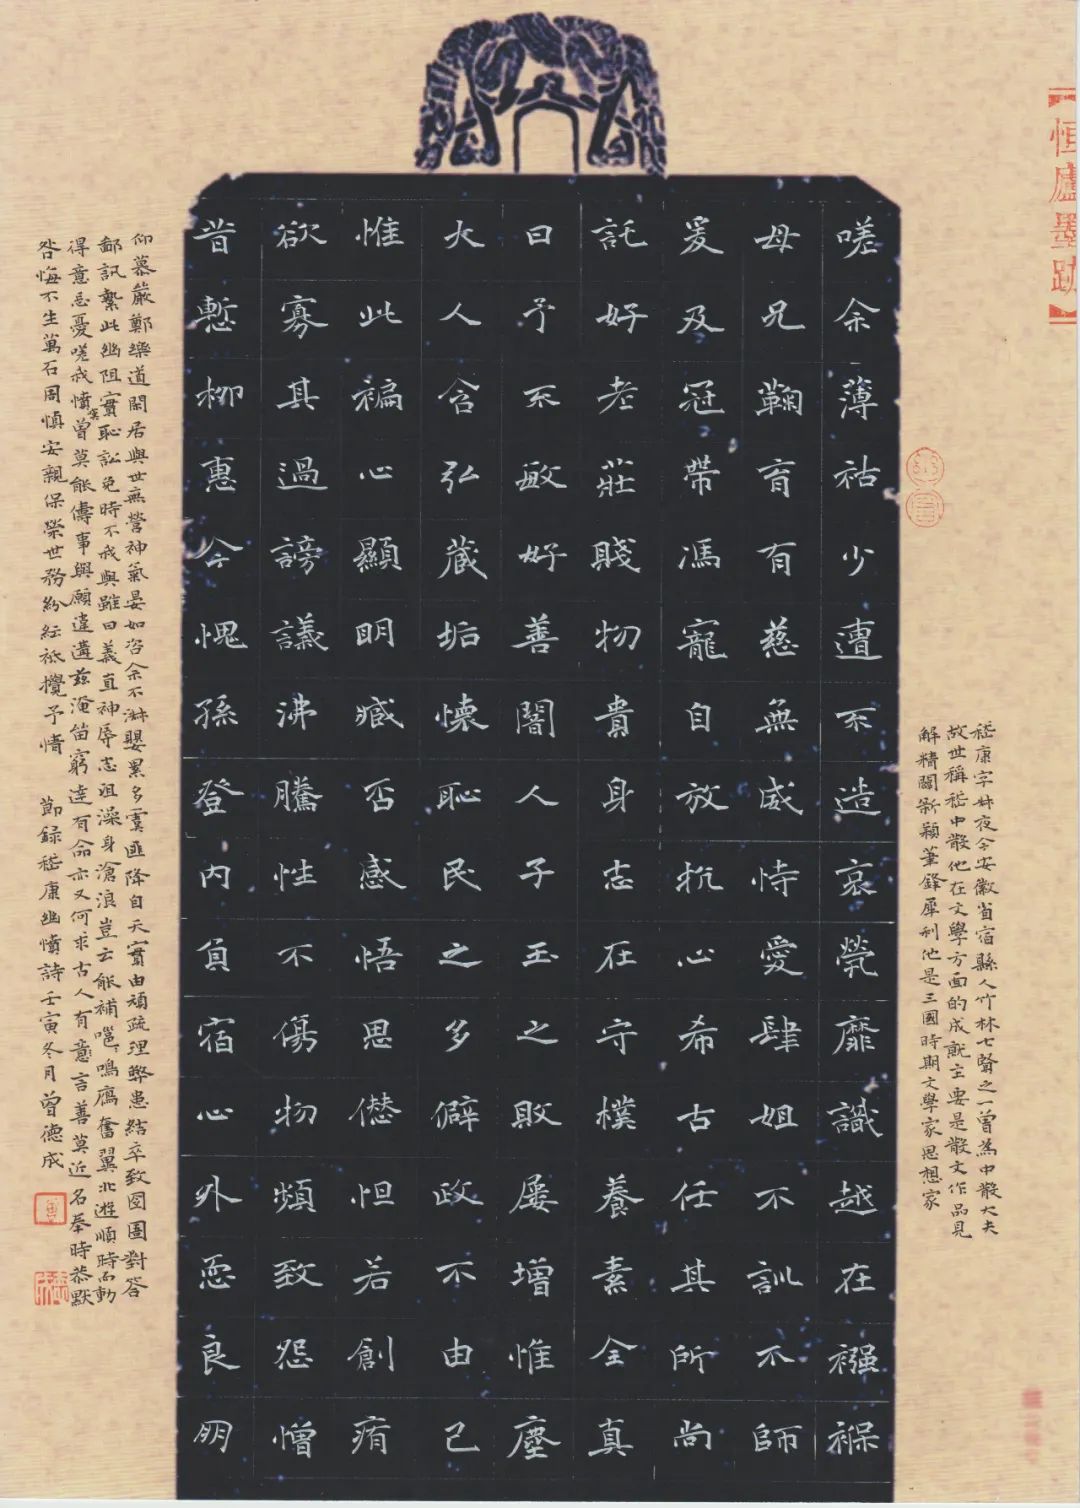 恒廬墨跡
嵇康字叔夜今安徽省宿縣人竹林七賢之一曾為中散大夫
故世稱嵇中散他在文學方面的成就主要是散文作品見
解精闢新穎筆鋒犀利他是三國時期文學家思想家
嗟余薄祜少遭不造哀煢靡識越在襁褓
母兄鞠育有慈無威恃愛肆姐不訓不師
爰及冠帶馮寵自放抗心希古任其所尚
託好老莊賤物貴身志在守樸養素全真
曰予不敏好善闇人子玉之敗屡增惟塵
大人含弘藏垢懷恥民之多僻政不由己
惟此褊心顯明臧否感悟思愆怛若創痏
欲寡其過謗議沸騰性不傷物頻致怨憎
昔慙柳惠今愧孫登內負宿心外恧良朋
仰慕嚴鄭樂道閑居與世無營神氣晏如咨余不淋嬰累多虞匪降自天實由頑疏理弊患結卒致囹圄對答
鄙訊縶此幽阻實恥訟免時不我與雖曰義直神辱志沮澡身滄浪豈云能補嗈嗈鳴鴈奮翼北遊順時而動
得意忘憂嗟我憤曾莫能儔事與願違遘茲淹留窮達有命亦又何求古人有意言善莫近名奉時恭默
咎悔不生萬石周慎安親保榮世務紛紜祗攪予情 節録嵇康幽憤詩壬寅冬月曾德成